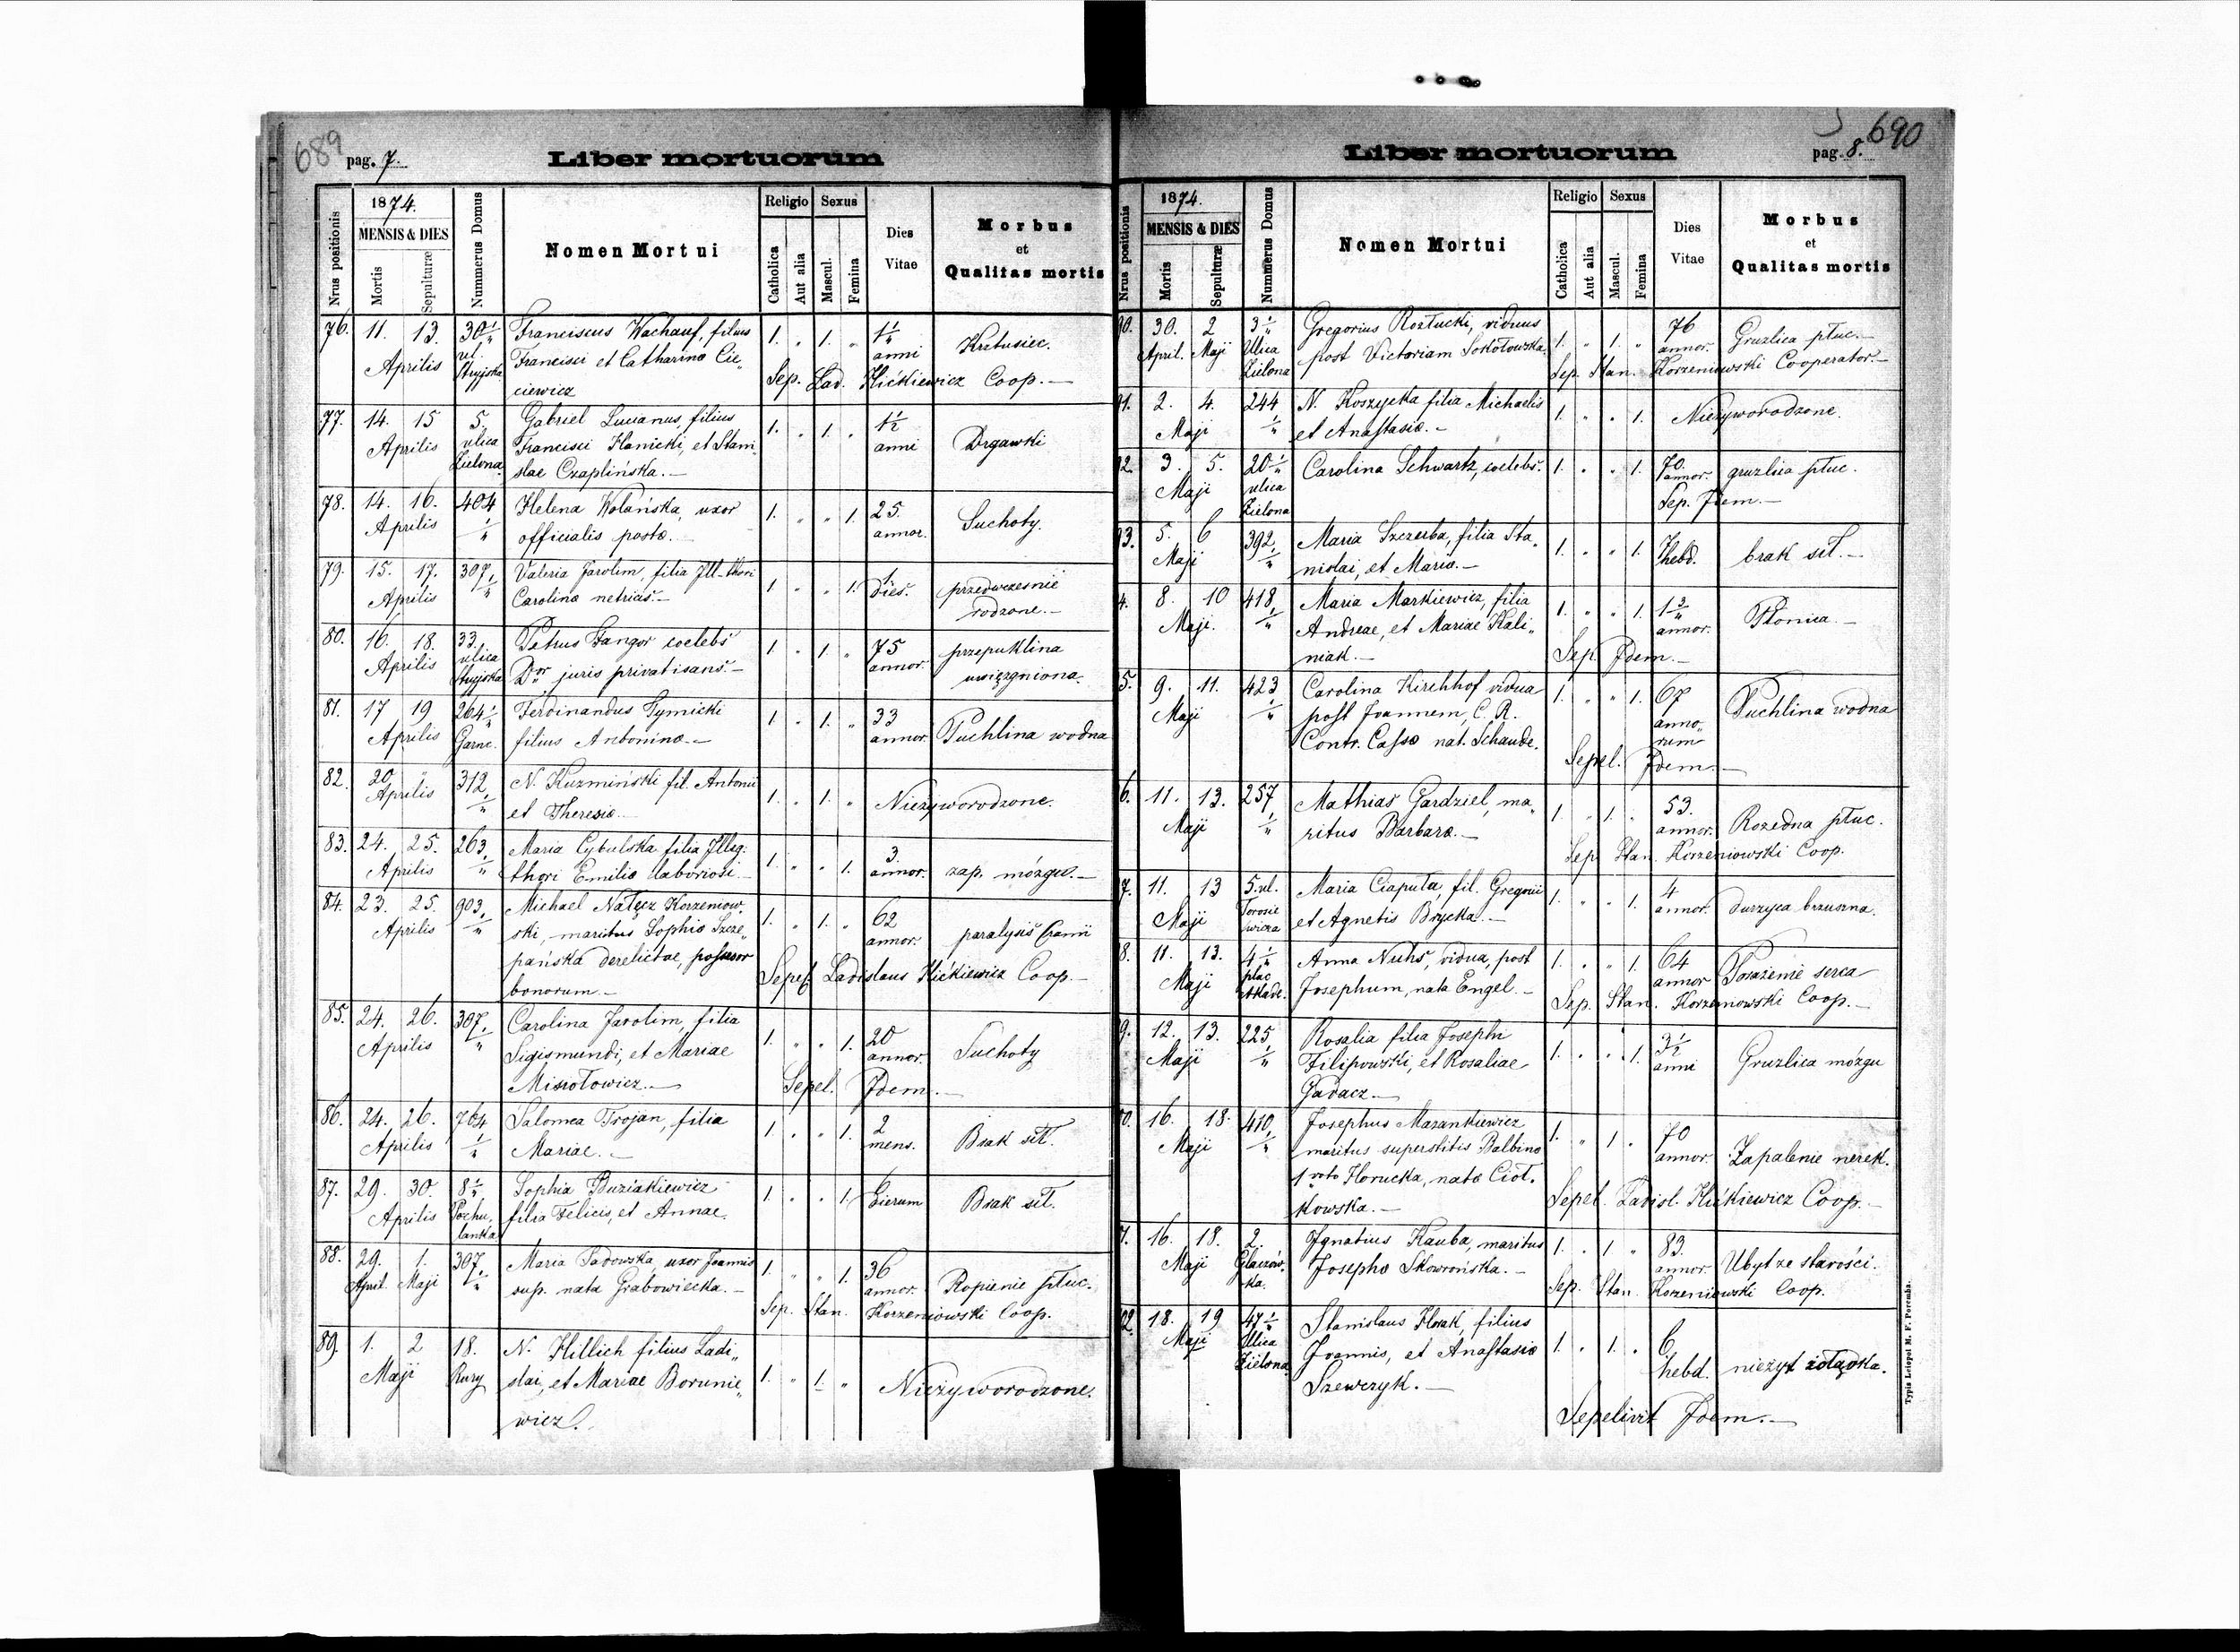 689
pag. 7.
Liber mortuorum
Nrus positionis
1874.
MENSIS & DIES
Mortis
Sepulturæ
Nummerus Domus
Nomen Mortui
Religio
Catholica
Aut alia
Sexus
Mascul.
Femina
Dies
Vitae
Morbus
et
Qualitas mortis
76. 11. 13. 30 1/4 Franciscus Wachauf, filius 1. " 1. " 1 1/4
Aprilis ul. Stryjska Francisci et Catharina Cie„ anni Krztusiec.
ciewicz Sep. Lad. Hićkiewicz Coop.—
77. 14. 15 5. Gabriel Lucianus, filius 1. " 1. " 1 1/2
Aprilis ulica Francisci Hanicki, et Stani anni Drgawki
Zielona. slae Czaplińska.—
78. 14. 16. 404 Helena Wolańska, uxor 1. " " 1. 25.
Aprilis 1/4 officialis posto.— annor. Suchoty.
79. 15. 17. 307. Valeria Jarolim, filia Ill-thori 1. " " 1. 1 przedwcześnie
Aprilis 1/4 Carolina netrias.— dies. rodzone.—
80. 16. 18. 33. Petrus Gangor coelebs 1. " 1. " 75 przepuklina
Aprilis ulica Stryjska Dor juris privatisans.— annor. uwięzgniona.
81. 17 19 264 1/4 Ferdinandus Tymicki 1. " 1. " 33
Aprilis Garnc. filius Antonina.— annor. Puchlina wodna
82. 20. " 312. N. Kuzmiński fil. Antonii 1. " 1. "
Aprilis 1/4 et Theresia.— Nieżyworodzone.
83. 24. 25. 263. Maria Cybulska filia Illeg. 1. " " 1. 3.
Aprilis 1/4 thori Emilia laboriosi.— annor. zap. mózgu.—
84. 23. 25. 903. Michael Nałęcz Korzeniow. 1. " 1. " 62
Aprilis 1/4 ski, maritus Sophia Szcze„ annor. paralysis Cranii
pańska derelictae, possessor Sepel. Ladislaus Hićkiewicz Coop.—
bonorum.—
85. 24. 26. 307. Carolina Jarolim, filia 1. " " 1. 20
Aprilis 1/4 Sigismundi, et Mariae annor. Suchoty
Misiołowicz.— Sepel. Idem.—
86. 24. 26. 764 Salomea Trojan, filia 1. " " 1. 2
Aprilis 1/4 Mariae.— mens. Brak sił.
87. 29. 30. 8 1/4 Sophia Buziakiewicz 1. " " 1. 6
Aprilis Pochu„ lanka filia Felicis, et Annae. dierum Brak sił.
88. 29. 1. 307. Maria Sadowska, uxor Joannis 1. " " 1. 36
April. Maji 1/4 sup. nata Grabowiecka.— annor. Ropienie płuc.
Sep. Stan. Korzeniowski Coop.
89. 1. 2 18. N. Hillich filius Ladi„
Maji Rury slai, et Mariae Borunie„ 1. " 1. " Nieżyworodzone.
wicz.
690
Liber mortuorum
pag. 8.
Nrus positionis
1874.
MENSIS & DIES
Mortis
Sepulturæ
Nummerus Domus
Nomen Mortui
Religio
Catholica
Aut alia
Sexus
Mascul.
Femina
Dies
Vitae
Morbus
et
Qualitas mortis
90. 30. 2 3 1/4 Gregorius Roztucki, viduus 1. " 1. " 76 Gruzlica płuc.—
April. Maji Ulica Zielona post Victoriam Sokołowska. annor.
Sep. Stan. Korzeniowski Cooperator.—
91. 2. 4. 244 N. Koszycka filia Michaelis 1. " " 1. Nieżyworodzone.
Maji 1/4 et Anastasia.—
92. 3. 5. 20 1/4 Carolina Schwartz, coelebs. 1. " " 1. 70. gruzlica płuc.
Maji ulica Zielona annor. Sep. Idem.—
93. 5. 6 392. Maria Szczerba, filia Sta„ 1. " " 1. 7
Maji 1/4 nislai, et Maria.— hebd. brak sił.—
4. 8. 10 418. Maria Markiewicz, filia 1. " " 1. 1 3/4
Maji. 1/4 Andreae, et Mariae Kali„ annor. Płonica.—
niak.— Sep. Idem.—
5. 9. 11. 423 Carolina Kirchhof vidua 1. " " 1. 67
Maji 1/4 post Joannem, C. R. anno„ rum Puchlina wodna
Contr. Cassa nat. Schaude. Sepel. Idem.—
6. 11. 13. 257. Mathias Gardziel, ma„ 1. " 1. " 53.
Maji 1/4 ritus Barbara.— annor. Rozedna płuc.
Sep. Stan. Korzeniowski Coop.
7. 11. 13 5. ul. Maria Ciaputa, fil. Gregorii 1. " " 1. 4
Maji Torosie wicza et Agnetis Brycka.— annor. durzyca brzuszna.
8. 11. 13. 4 1/4 Anna Nuhs, vidua, post 1. " " 1. 64
Maji plac Akade. Josephum, nata Engel.— annor Porażenie serca
Sep. Stan. Korzeniowski Coop.—
9. 12. 13. 225. Rosalia filia Josephi 1. " " 1. 3 1/2
Maji 1/4 Filipowski, et Rosaliae anni Gruzlica mózgu
Gadacz.—
00. 16. 18. 410. Josephus Mazankiewicz 1. " 1. " 70
Maji 1/4 maritus superstitis Balbina annor. Zapalenie nerek.
1 voto Honucka, nata Ciot. Sepel. Ladisl. Hićkiewicz Coop.—
kowska.—
1. 16. 18. 2. Ignatius Kauba, maritus 1. " 1. " 83.
Maji Glaczów„ ka. Josepha Skowrońska.— annor. Ubyt ze starości.
Sep. Stan. Korzeniowski Coop.
02. 18. 19 47 1/4 Stanislaus Horak, filius
Maji Ulica Zielona Joannis, et Anastasia 1. " 1. " 6. hebd. nieżyt żołądka.
Szewczyk.—
Sepelivit Idem.—
Typis Leopol M. F. Poremba.